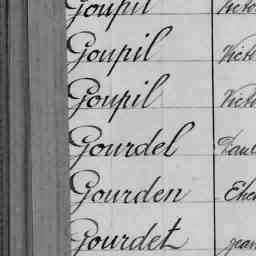 Goupil Victo
Goupil Victo
Goupil Victo
Gourdel Paul
Gourden
Gourdet Jean